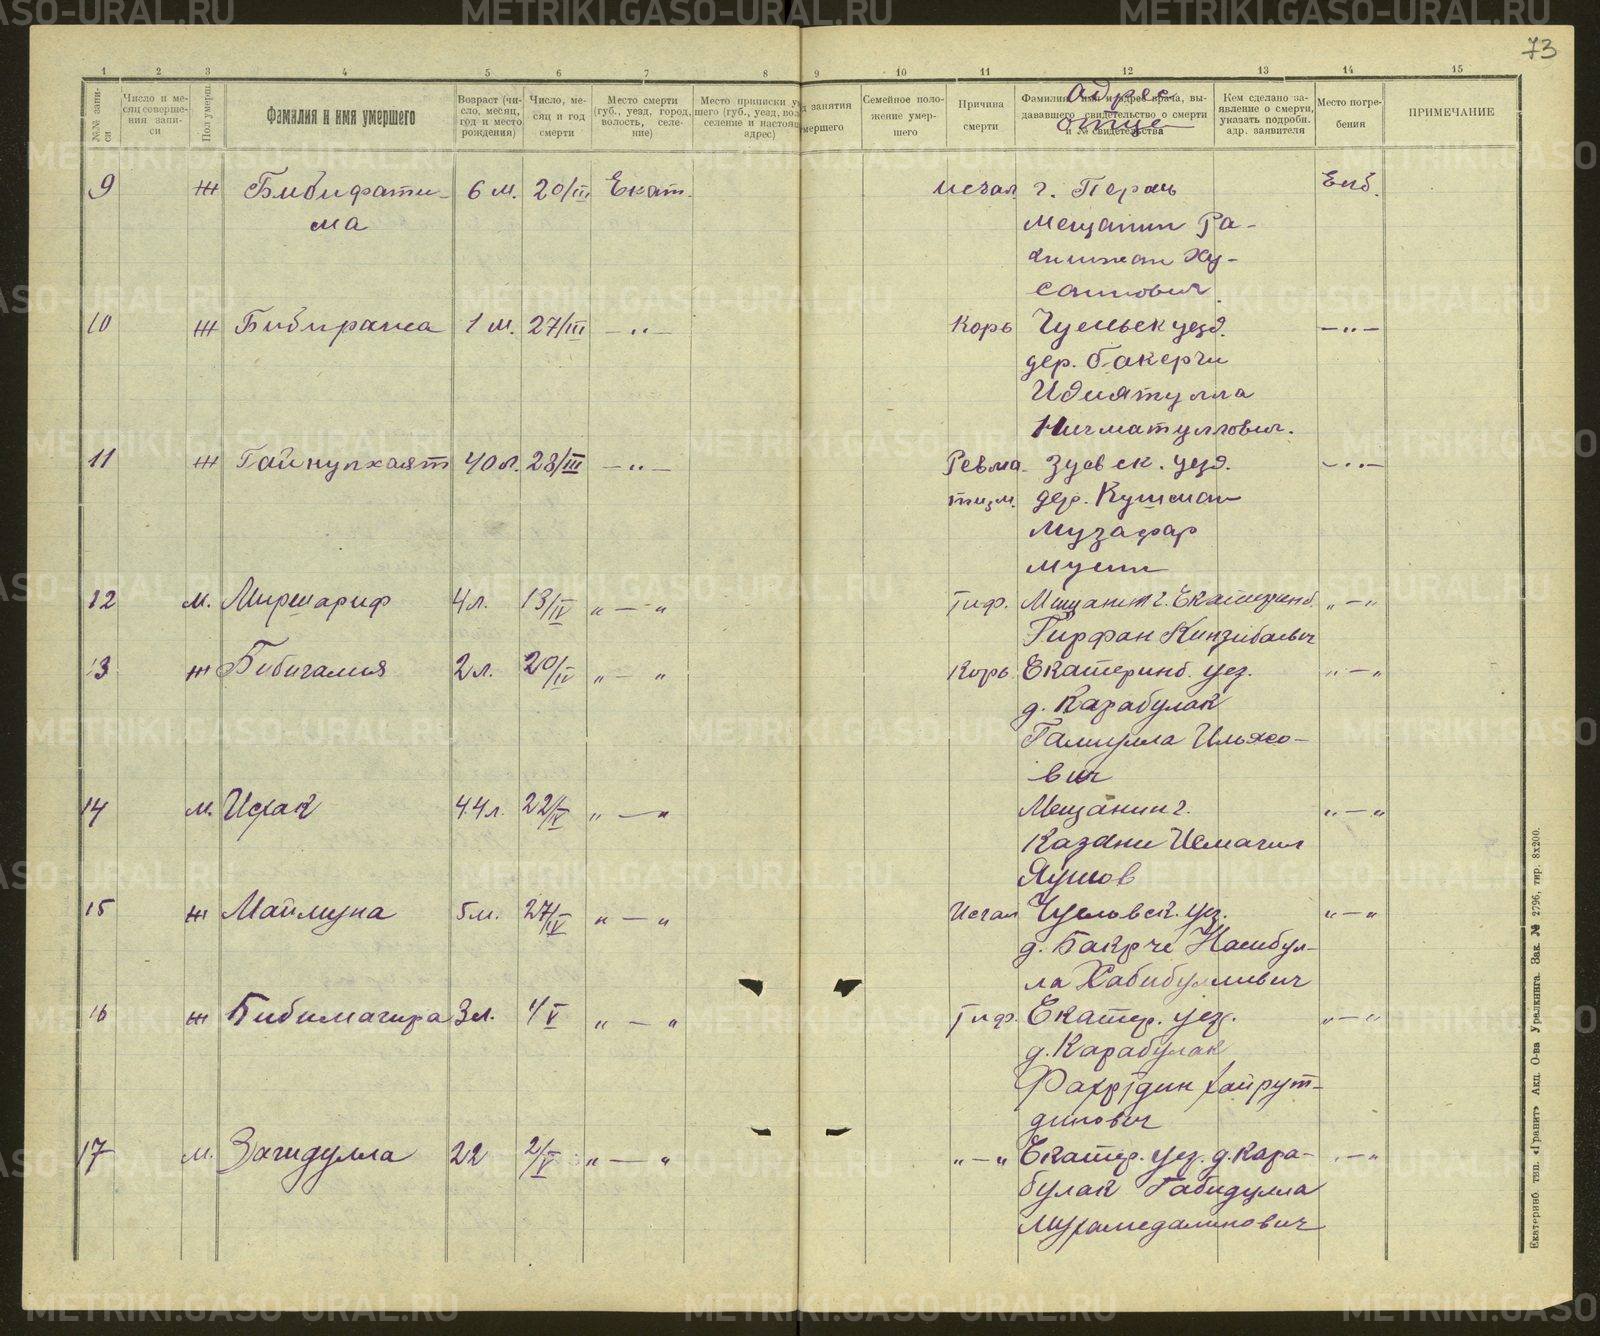 73
1 2 3 4 5 6 7 8 9 10 11 12 13 14 15
№№ запи-
си
Число и ме-
сяц соверше-
ния запи-
си
Пол умерш.
Фамилия и имя умершего
Возраст (чи-
сло, месяц,
год и место
рождения)
Число, ме-
сяц и год
смерти
Место смерти
(губ., уезд, город,
волость, селе-
ние)
Место приписки у
шего (губ., уезд, вол
селение и настоящ
адрес)
д занятия
умершего
Семейное поло-
жение умер-
шего
Причина
смерти
Фамилия, имя и адрес врача, вы-
дававшего свидетельство о смерти
и № свидетельства
Адрес
отца
Кем сделано за-
явление о смерти,
указать подробн.
адр. заявителя
Место погре-
бения
ПРИМЕЧАНИЕ
9 Ж Бибифати- 6 м. 20/III Екат. Исчал г. Пермь Екб.
ма Мещанин Ра-
химжан Ху-
саинович.
10 Ж 1 м. 27/III —"— Корь уезд. —"—
дер. Бакерчи
Идиятулла
Нигматуллович.
11 Ж Гайнулхаят 40 л. 28/III —"— Ревма- уезд. —"—
тизм. дер.
Музафар
12 м. Миршариф 4 л. 13/IV "—" Тиф. Мещанин г. Екатеринб. "—"
Гирфан Кинзибаевич
13 ж Бибигалия 2 л. 20/IV "—" Корь Екатеринб. уез. "—"
д. Карабулак
Галиулла Ильясо-
вич
14 м. Исхак 44 л. 22/IV "—" Мещанин г. "—"
Казани Исмагил
Яушов
15 ж Маймуна 5 м. 27/IV "—" Исчал уез. "—"
д. Бакрче
ла Хабибуллович
16 ж Бибимагира 3 л. 4/V "—" Тиф. Екатер. уез. "—"
д. Карабулак
Фахрудин Хайрут-
динович
17 м. Загидулла 22 2/V "—" "—" Екатер. уез. д. Кара- "—"
булак Габидулла
Мухамедалинович
Екатеринб. тип. «Гранит» Акц. О-ва Уралкнига. Зак. № 2796, тир. 8х200.
METRIKI.GASO-URAL.RU